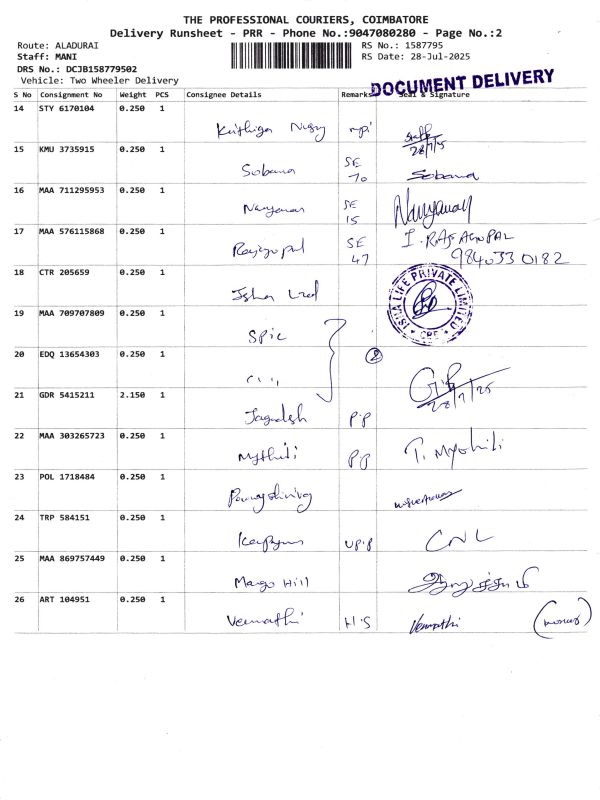 THE PROFESSIONAL COURIERS, COIMBATORE
Delivery Runsheet - PRR - Phone No.:9047080280 - Page No.:2
Route: ALADURAI
Staff: MANI
DRS No.: DCJB158779502
Vehicle: Two Wheeler Delivery
RS No.: 1587795
RS Date: 28-Jul-2025
DOCUMENT DELIVERY
S No Consignment No Weight PCS Consignee Details Remarks Seal & Signature
14 STY 6170104 0.250 1
28/7/25
15 KMU 3735915 0.250 1
Sobana SE 70 Sobana
16 MAA 711295953 0.250 1
Narayanan SE 15 Narayanan
17 MAA 576115868 0.250 1
Rajgopal SE 47 I. RAJAGOPAL
9840330182
18 CTR 205659 0.250 1
Isha
ISHA LIFE PRIVATE LIMITED
19 MAA 709707809 0.250 1
SPIC
20 EDQ 13654303 0.250 1
2
28/7/25
21 GDR 5415211 2.150 1
Jagadesh P.P
22 MAA 303265723 0.250 1
Mythili PP T. Mythili
23 POL 1718484 0.250 1
24 TRP 584151 0.250 1
CNL
25 MAA 869757449 0.250 1
Margo Hill
26 ART 104951 0.250 1
Vennathi H.S Vennathi